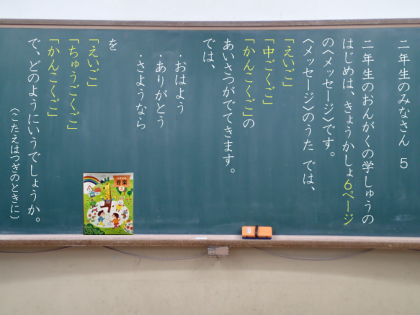 二年生のみなさん 5
二年生のおんがくの学しゅうの
はじめは、きょうかしょ6ページ
の〈メッセージ〉です。
〈メッセージ〉のうた では、
「えいご」
「中ごくご」
「かんこくご」の
あいさつがでてきます。
では、
・おはよう
・ありがとう
・さようなら
を
「えいご」
「ちゅうごくご」
「かんこくご」
で、どのようにいうでしょうか。
(こたえはつぎのときに)